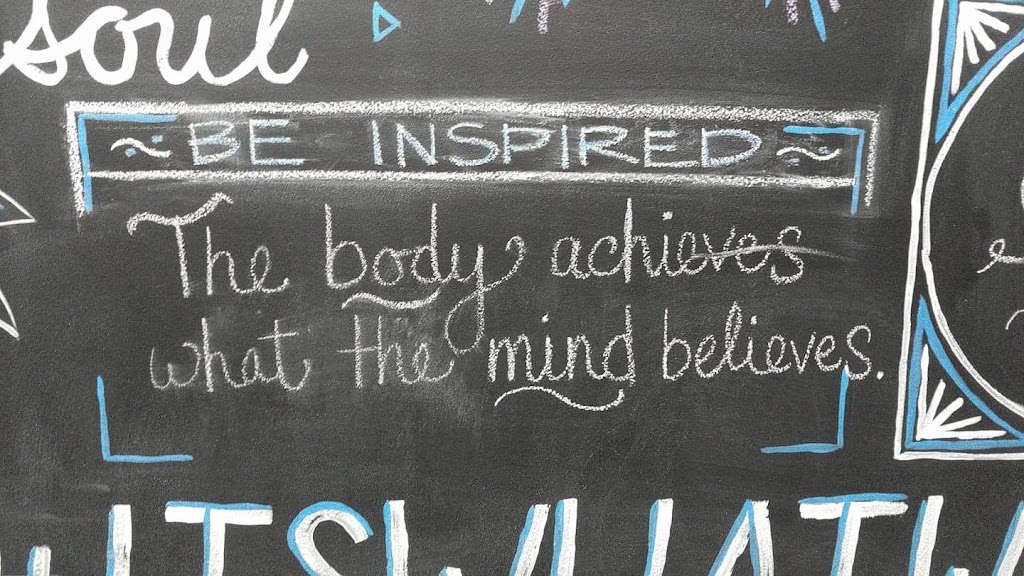 soul
~ BE INSPIRED ~
The body achieves
what the mind believes.